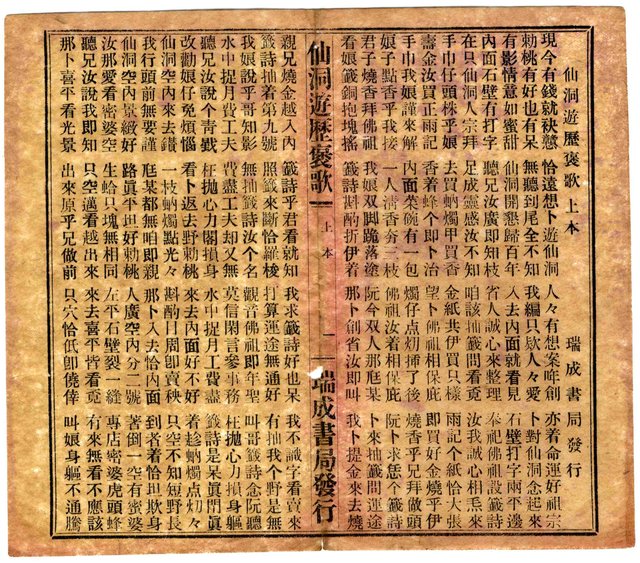 仙洞遊歷褒歌 上本 瑞成書局發行
現今有錢就袂戇 恰遠想卜遊仙洞 人々有想案哖創 亦着命運好祖宗
勅桃有好也有呆 無聽到尾全不知 我編只欵人々 卜對仙洞念起來
有影情意如蜜甜 仙洞開懇歸百年 入去內面就看見 石壁打字兩平邊
內面石壁有打字 聽兄汝廣即知枝 省人誠心來整理 奉祀佛祖設籤詩
在只仙洞人宗拜 足成靈感汝不知 咱該抽籤問看覔 汝我誠心相焉來
手巾仔頭株乎娘 去買蚋燭甲買香 金紙共伊買只樣 雨記个紙恰大張
壽金汝買正雨記 香着蜂个即卜冶 望卜佛祖相保庇 即買好金燒乎伊
手巾我娘謹來解 內面菜碗有一包 燭仔点插了後 燒香乎兄拜做頭
娘子點香乎我接 一人清香夯三枝 佛祖汝着相保庇 阮卜求恁个籤詩
君子燒香拜佛祖 我娘双脚跪落塗 阮今双人那尫某 卜來抽籤問運途
看娘籤銅抱塊搖 籤詩斟酌折伊着 那卜創省汝即叫 我卜提金來去燒
仙洞遊歷褒歌 上本 一 瑞成書局發行
親兄燒金越入內 籤詩乎君看就知 我求籤詩好也呆 我不識字看賣來
籤詩抽着第九號 照籤來斷恰羅梭 打算運途無通好 有抽我个野是無
娘我說乎哥知影 無抽籤詩汝个名 觀音佛祖即年聖 叫哥籤詩念阮聽
水中捉月費工夫 費盡工夫却又無 莫信閑言參事務 枉抛心力損身軀
聽兄汝說个青 枉抛心力閣損身 水中捉月工費盡 籤詩是呆眞閂眞
改勸娘仔免煩惱 看卜返去野勅桃 來去內面好不好 着趁蚋燭点
仙洞空內來去鑽 一枝蚋燭點光々 斟酌目周卽賣秧 只空不知短野長
我行頭前無要謹 尫某都無咱即親 那卜入去恰內面 到者着恰坦欺身
仙洞空內景緻好 路眞平坦好勅桃 人廣空內分二號 著倒一空有蜜婆
汝那愛看密婆空 生蛤只塊無相同 左平石壁裂一縫 專店密婆虎頭蜂
聽兄汝說我即知 只空邁看越出來 來去喜平皆看覔 有來無看不應該
那卜喜平看光景 出來原乎兄做前 只穴恰低卽僥倖 叫娘身軀不通騰